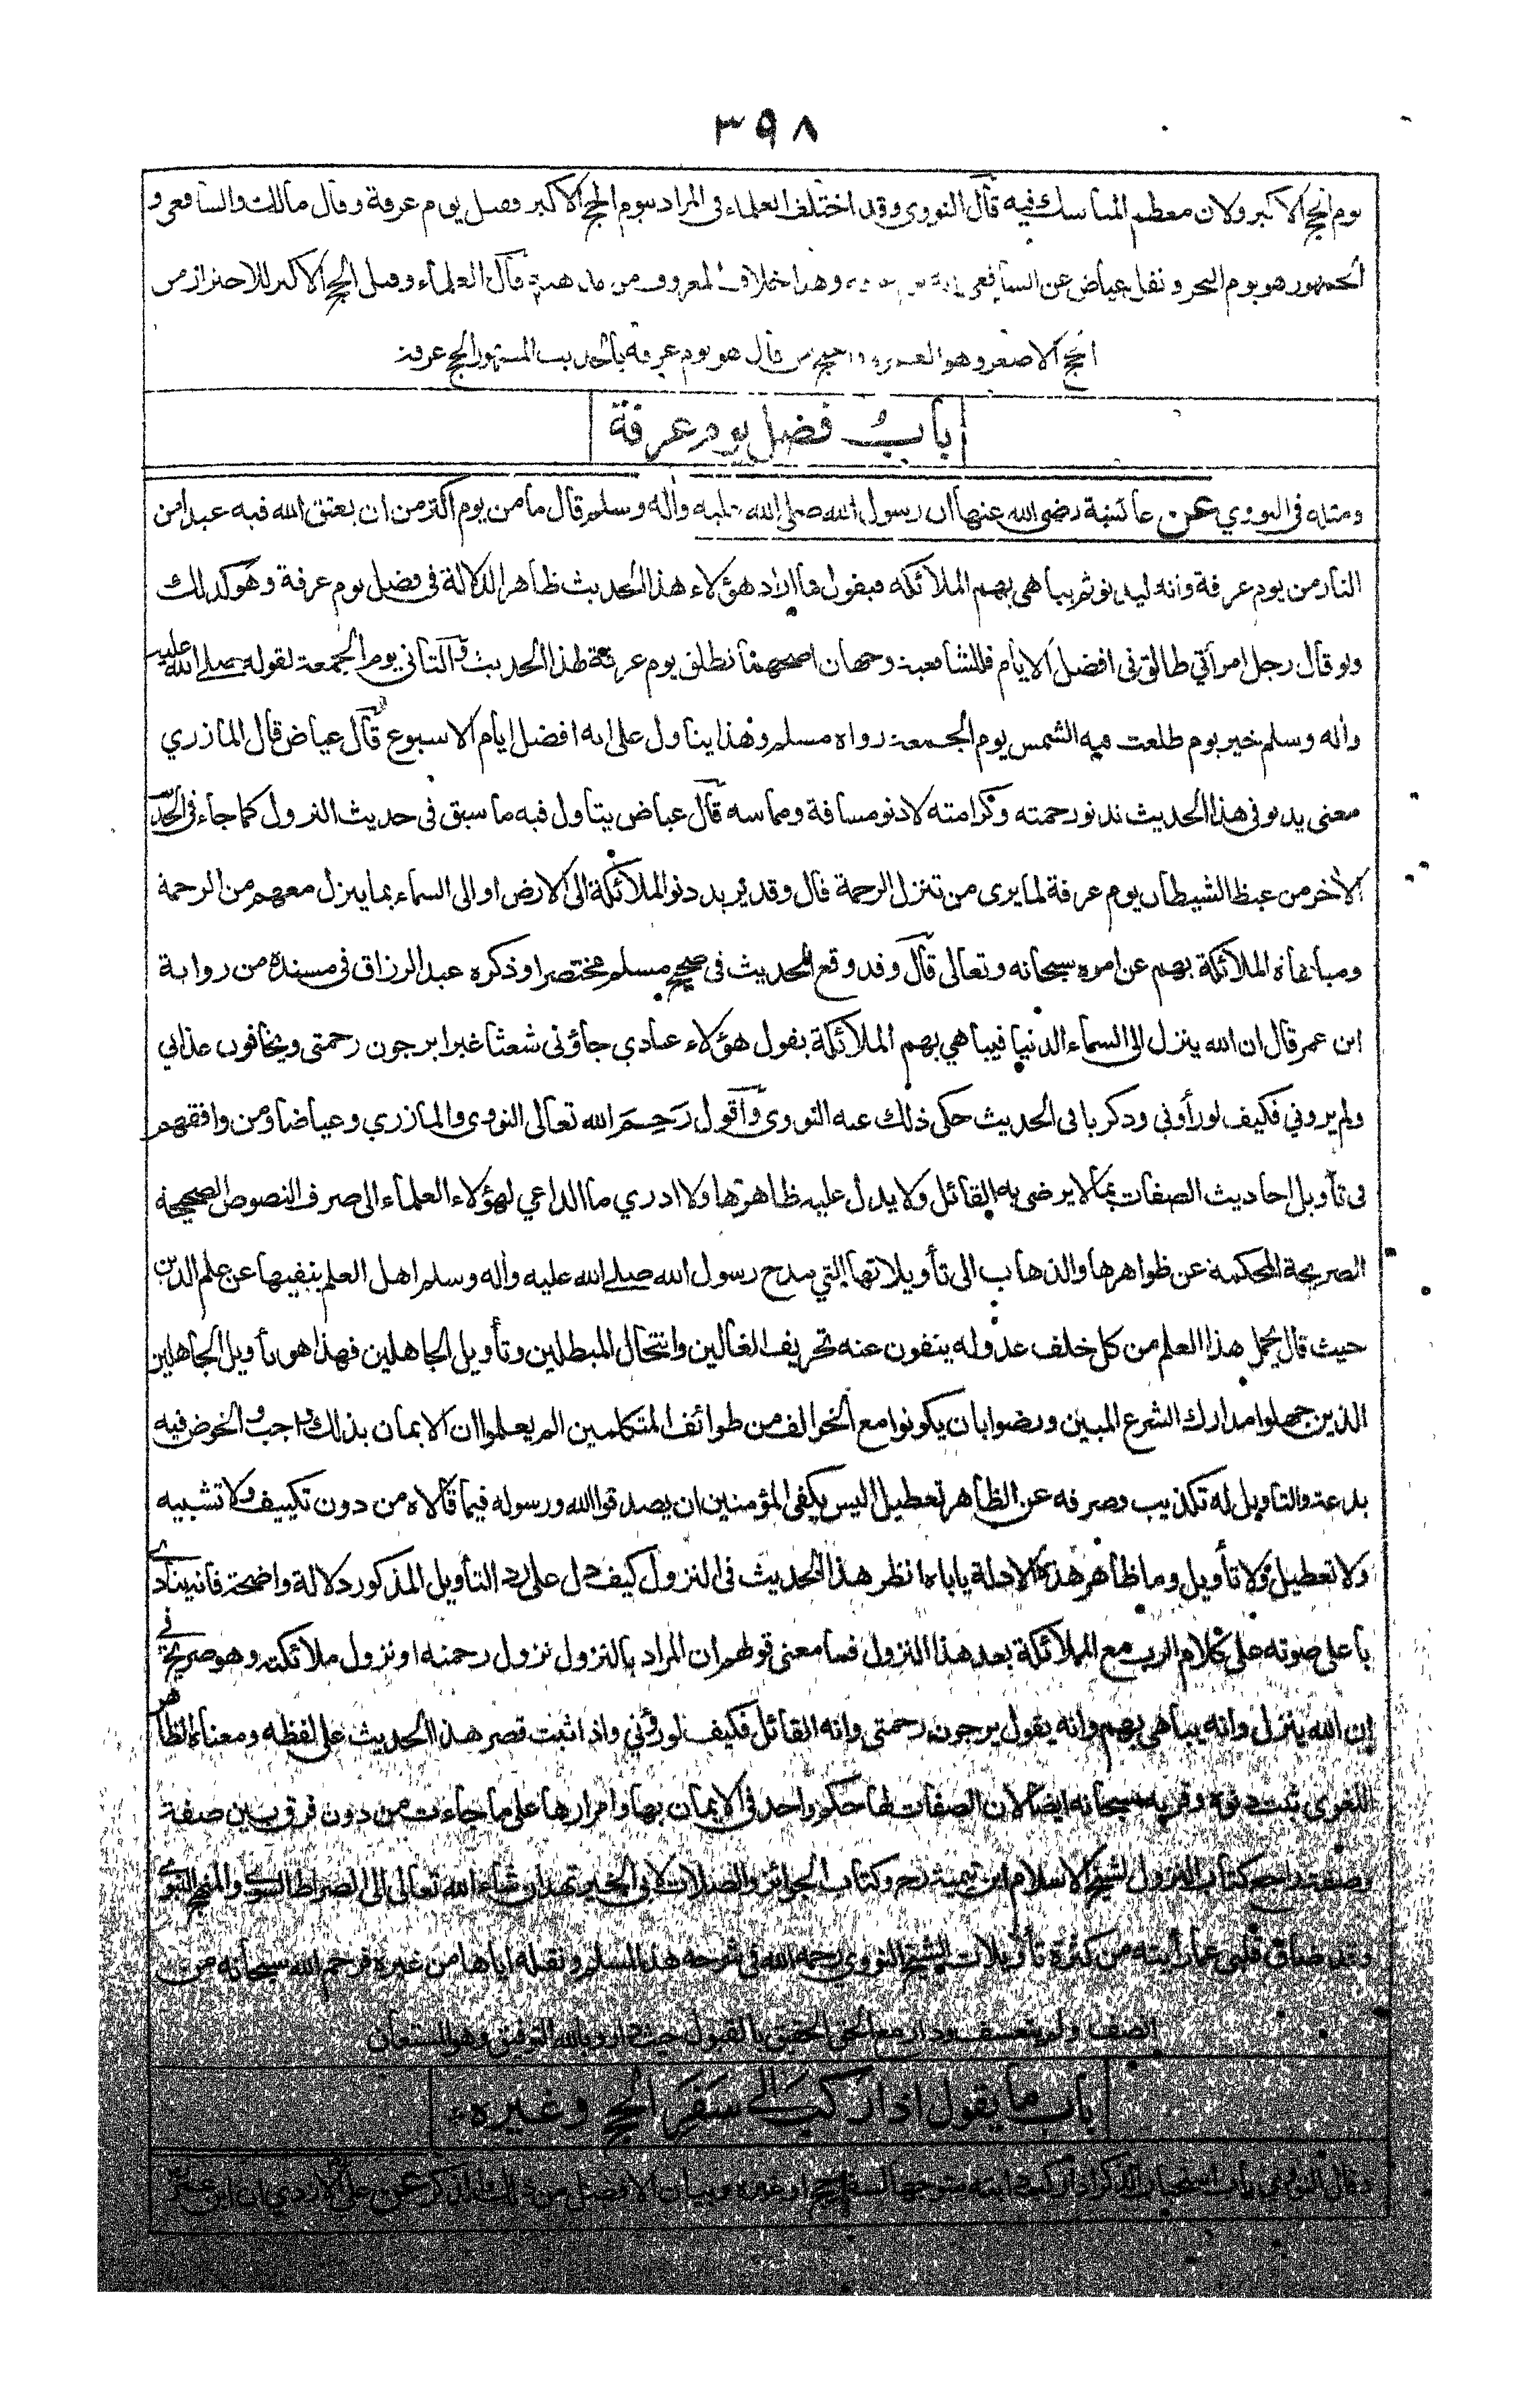 ٣٩٨
يوم الحج الاكبر ولان معظم المناسك فيه قال النووي وقد اختلف العلماء في المراد بيوم الحج الاكبر فقيل يوم عرفة وقال مالك والشافعي و
الجمهور هو يوم النحر ونقل عياض عن الشافعي وهذا خلاف المعروف من مذهبه قال العلماء وقيل الحج الاكبر للاحتراز من
الحج الاصغر وهو العمرة واحتج من قال هو يوم عرفة بالحديث المشهور الحج عرفة
باب فضل يوم عرفة
ومثله في النووي عن عائشة رضي الله عنها ان رسول الله صلى الله عليه وآله وسلم قال ما من يوم اكثر من ان يعتق الله فيه عبدا من
النار من يوم عرفة وانه ليدنو ثم يباهي بهم الملائكة فيقول ما اراد هؤلاء هذا الحديث ظاهر الدلالة في فضل يوم عرفة وهو كذلك
ولو قال رجل امرأتي طالق في افضل الايام فللشافعية وجهان اصحهما تطلق يوم عرفة لهذا الحديث والثاني يوم الجمعة لقوله صلى الله عليه
وآله وسلم خير يوم طلعت فيه الشمس يوم الجمعة رواه مسلم وهذا يتاول على انه افضل ايام الاسبوع قال عياض قال المازري
معنى يدنو في هذا الحديث تدنو رحمته وكرامته لا دنو مسافة ومماسه قال عياض يتاول فيه ما سبق في حديث النزول كما جاء في الحديث
الآخر من غيظ الشيطان يوم عرفة لما يرى من تنزل الرحمة قال وقد يريد دنو الملائكة الى الارض او الى السماء بما ينزل معهم من الرحمة
ومباهاة الملائكة بهم عن امره سبحانه وتعالى قال وقد وقع الحديث في صحيح مسلم مختصرا وذكره عبد الرزاق في مسنده من رواية
ابن عمر قال ان الله ينزل الى السماء الدنيا فيباهي بهم الملائكة يقول هؤلاء عبادي جاؤني شعثا غبرا يرجون رحمتي ويخافون عذابي
ولم يروني فكيف لو رأوني وذكر باقي الحديث حكى ذلك عنه النووي وأقول رَحِمَ الله تعالى النووي والمازري وعياضا ومن وافقهم
في تأويل احاديث الصفات بما لا يرضى به القائل ولا يدل عليه ظاهرها ولا ادري ما الداعي لهؤلاء العلماء الى صرف النصوص الصحيحة
الصريحة المحكمة عن ظواهرها والذهاب الى تأويلاتها التي مدح رسول الله صلى الله عليه وآله وسلم اهل العلم بنفيها عن علم الدين
حيث قال يحمل هذا العلم من كل خلف عدوله ينفون عنه تحريف الغالين وانتحال المبطلين وتأويل الجاهلين فهذا هو تأويل الجاهلين
الذين جهلوا مدارك الشرع المبين ورضوا بان يكونوا مع الخوالف من طوائف المتكلمين الم يعلموا ان الايمان بذلك واجب والخوض فيه
بدعة والتاويل له تكذيب وصرفه عن الظاهر تعطيل اليس يكفي المؤمنين ان يصدقوا الله ورسوله فيما قالاه من دون تكييف ولا تشبيه
ولا تعطيل ولا تأويل وما ظاهر هذه الادلة ياباه انظر هذا الحديث في النزول كيف دل على رد التأويل المذكور دلالة واضحة فانه ينادي
باعلى صوته على كلام الرب مع الملائكة بعد هذا النزول فما معنى قولهم ان المراد بالنزول نزول رحمته او نزول ملائكته وهو صريح في
ان الله ينزل وانه يباهي بهم وانه يقول يرجون رحمتي وانه القائل فكيف لو رؤني واذا ثبت قصر هذا الحديث على لفظه ومعناه الظاهر
اللغوي ثبت دنوه وقربه سبحانه ايضا لان الصفات لها حكم واحد في الايمان بها وامرارها على ما جاءت من دون فرق بين صفة
وصفة وراجع كتاب النزول لشيخ الاسلام ابن تيمية رح وكتاب الجوائز والصلات لابي الخير تهد ان شاء الله تعالى الى الصراط السوي والمنهج النبوي
وقد ضاق قلبي عما رأيته من كثرة تأويلات الشيخ النووي رحمه الله في شرحه هذا لمسلم ونقله اياها من غيره فرحم الله سبحانه من
انصف ولم يتعسف ودار مع الحق الحقيق بالقبول حيث دار وبالله التوفيق وهو المستعان
باب ما يقول اذا ركب الى سَفَرِ الحج وغيره
وقال النووي باب استحباب الذكر اذا ركب دابته متوجها لسفر حج او غيره وبيان الافضل من ذلك الذكر عن علي الازدي ان ابن عمر